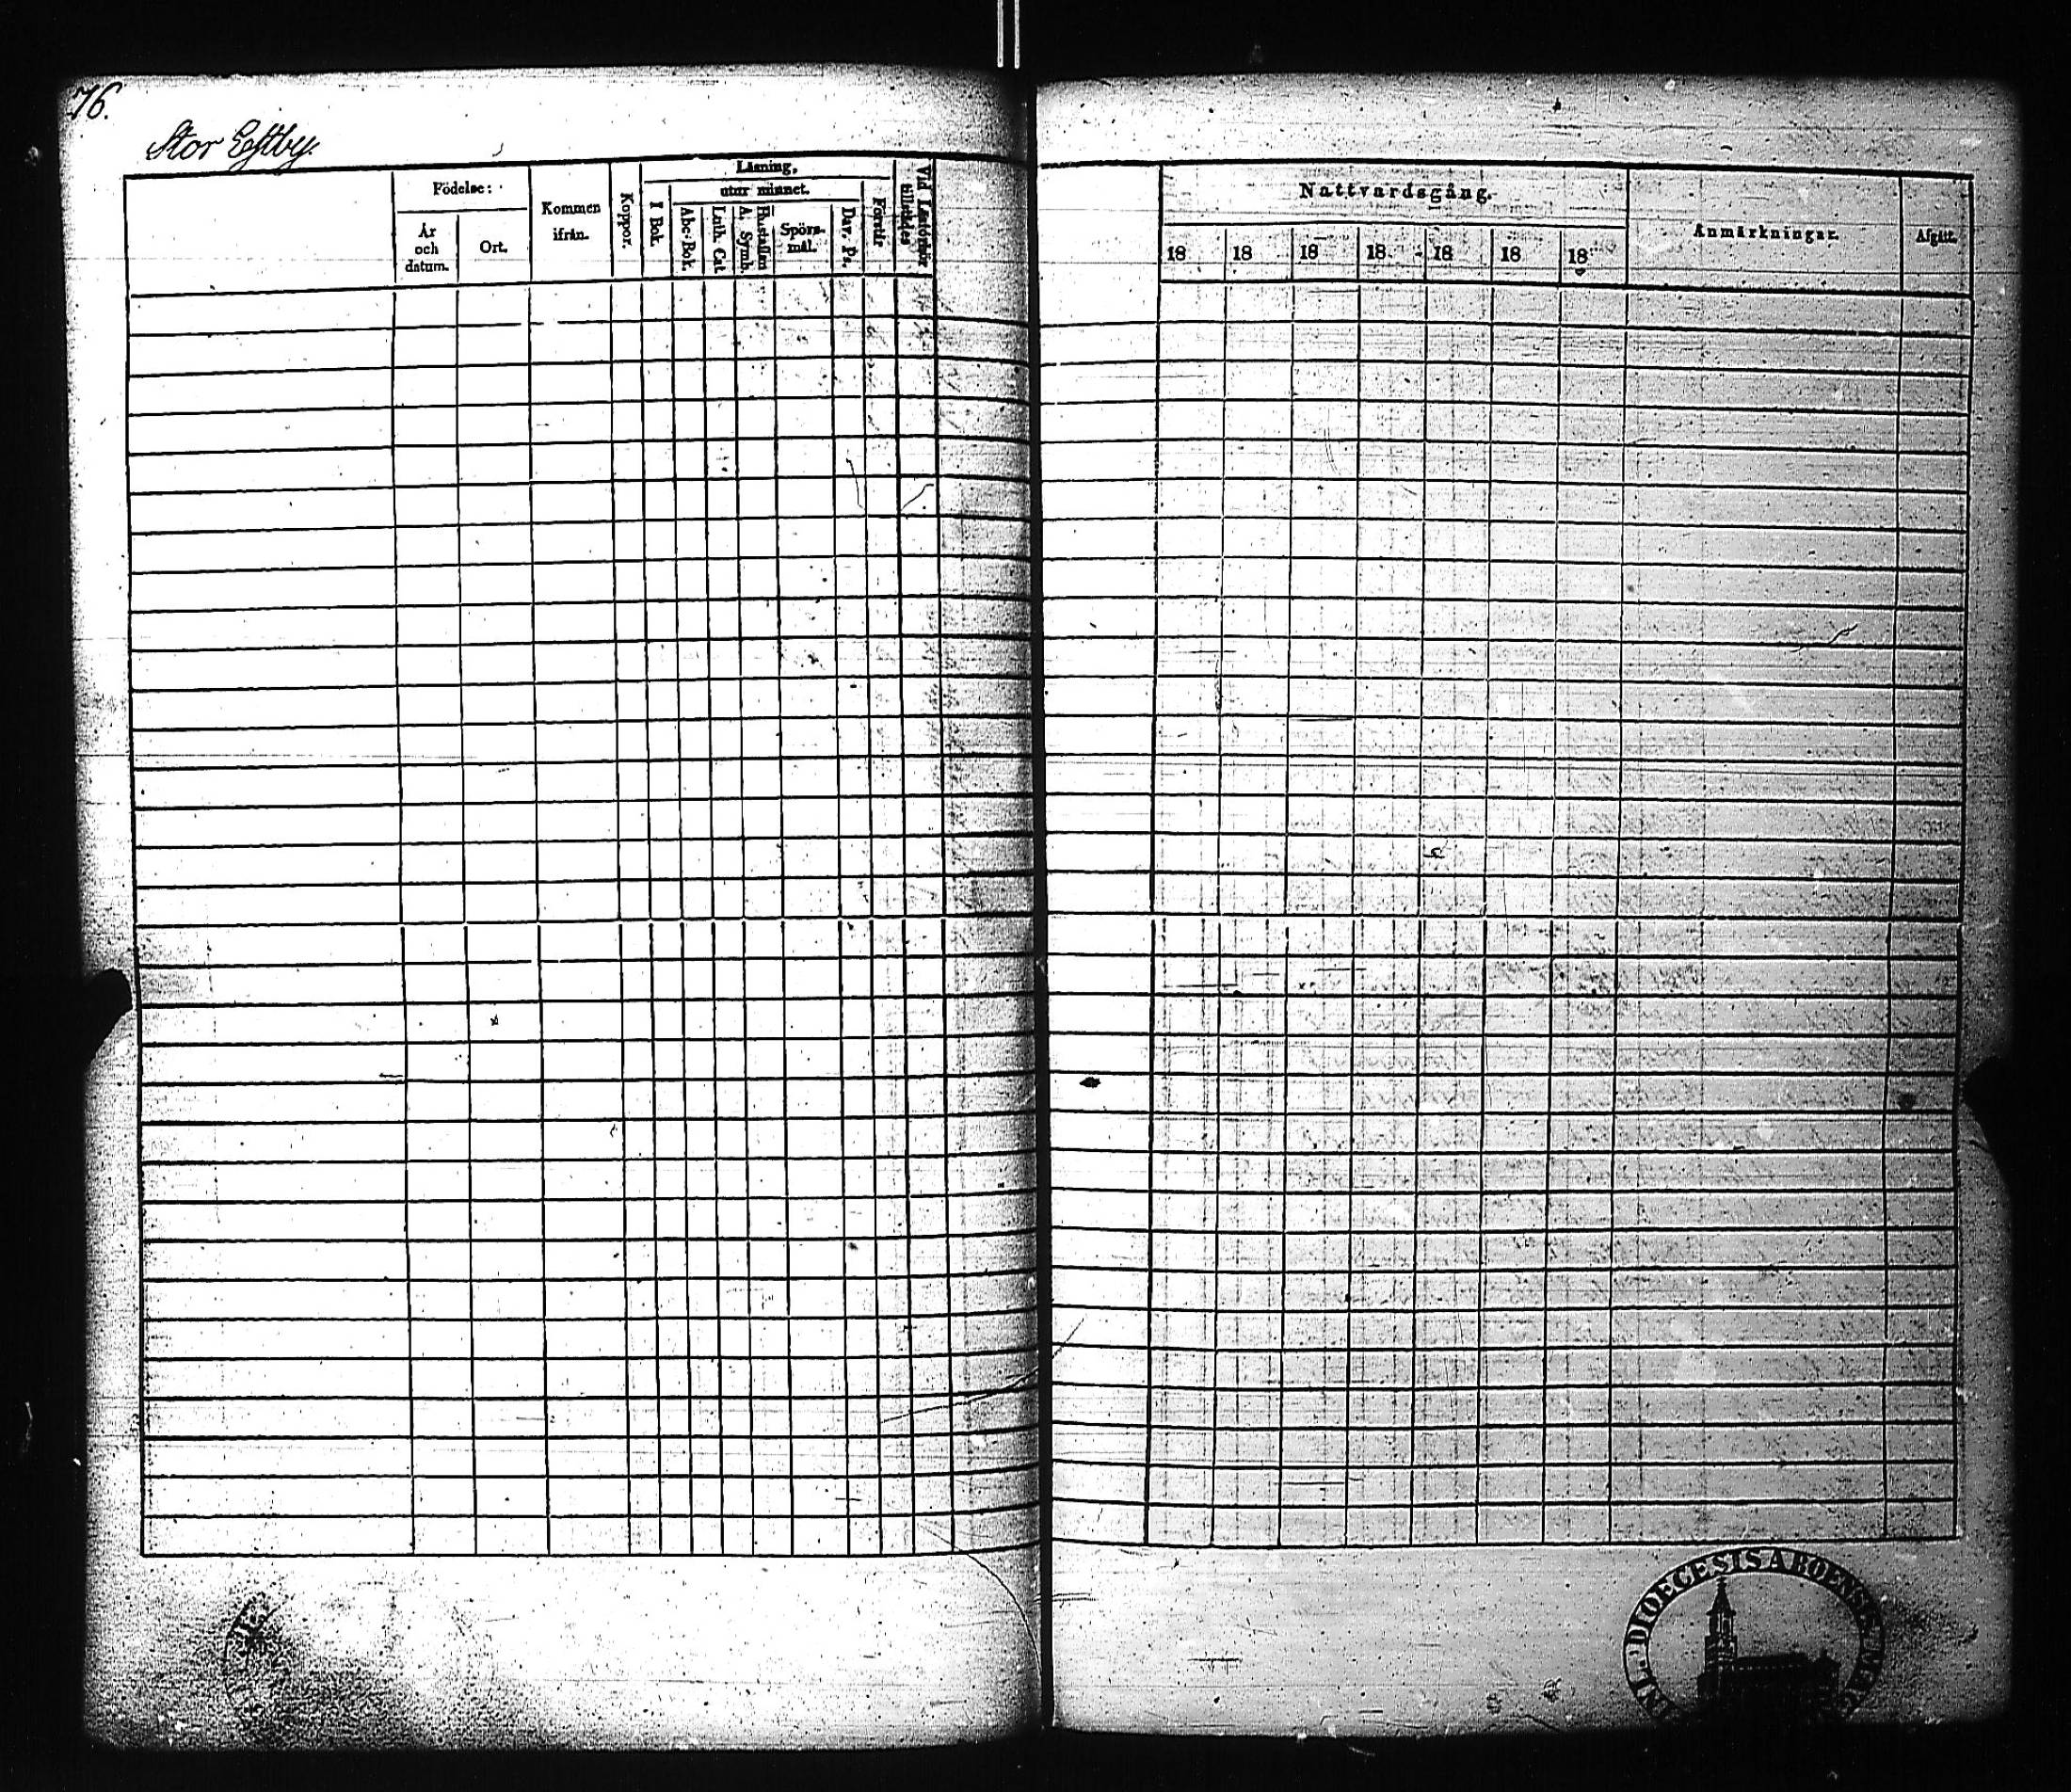 76.
Stor Estby.
Födelse:
År
och
datum.
Ort.
Kommen
ifrån.
Koppor.
Läsning,
utur minnet.
I Bok.
Abc-Bok.
Luth. Cat
A. Symb.
Hustaflan
Spörs-
mål.
Dav. Ps.
Förstår
Vid Läsförhör
tillstädes
Nattvardsgång.
18 18 18 18 18 18 18
Anmärkningar.
Afgått.
DIOECESIS ABOENSIS